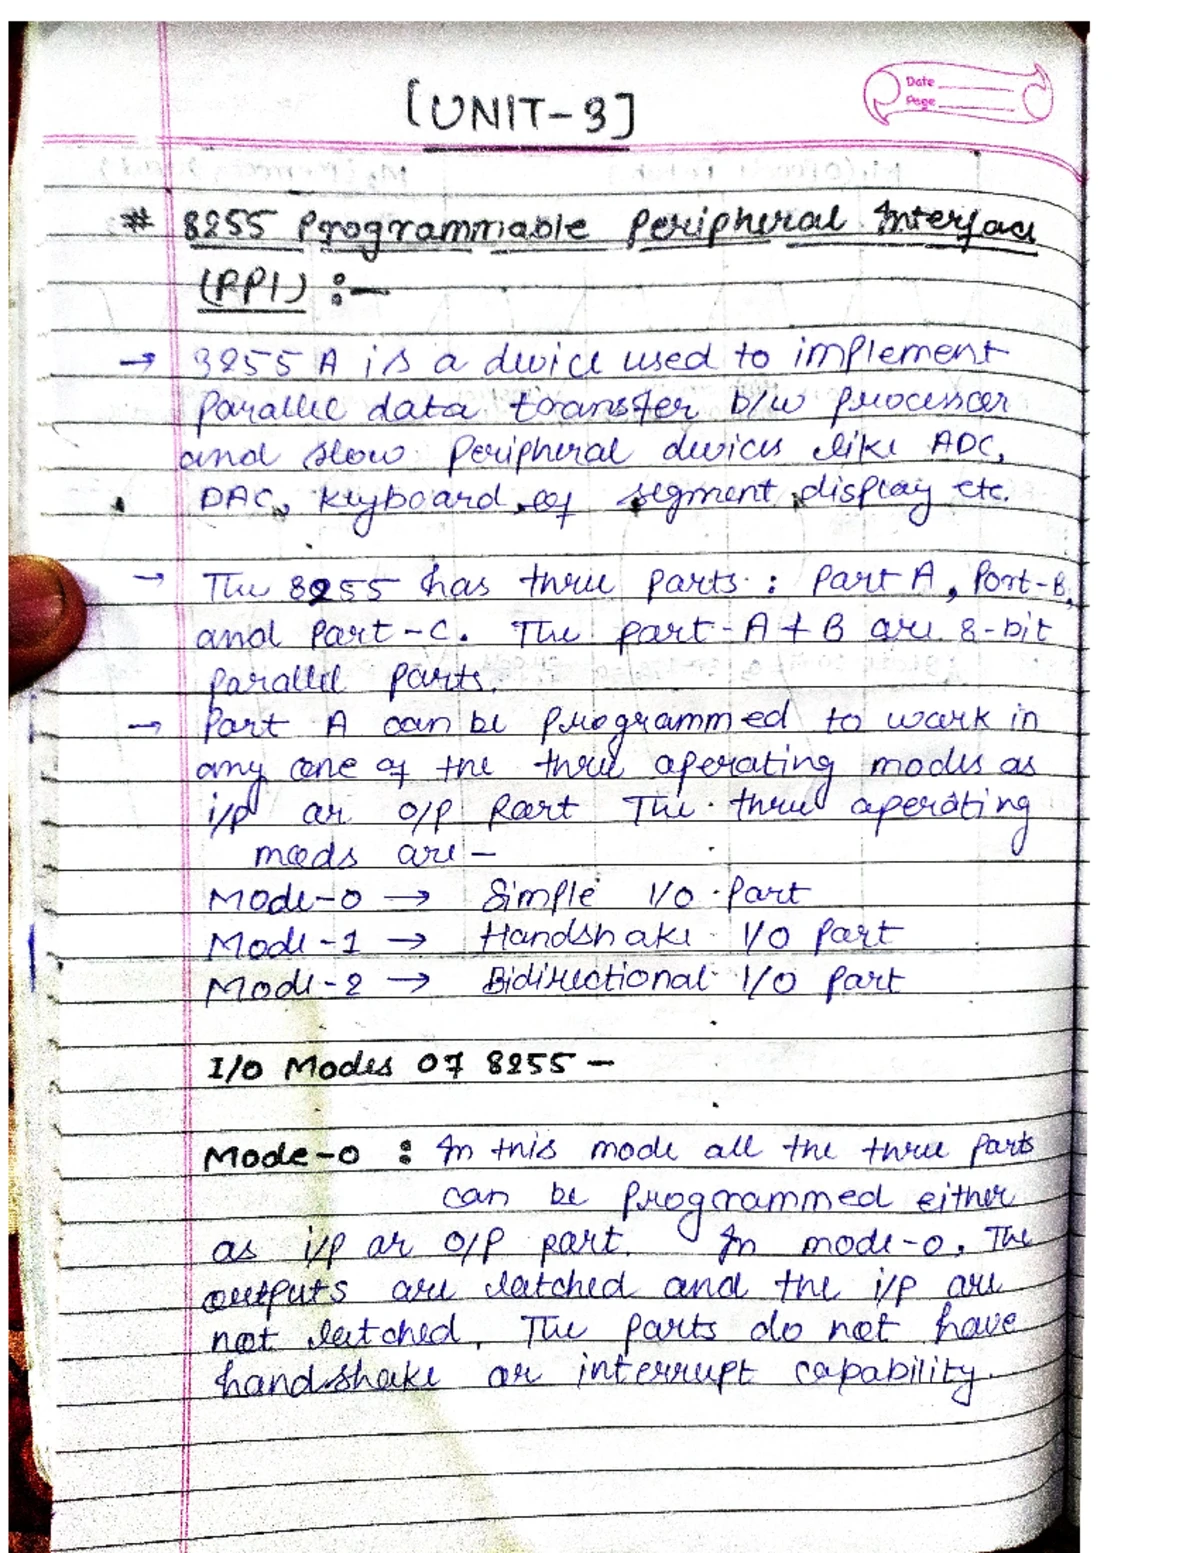 Date
Page
[UNIT-3]
# 8255 Programmable Peripheral Interface
(PPI) :-
→ 8255 A is a device used to implement
parallel data transfer b/w processor
and slow peripheral devices like ADC,
DAC, keyboard, of segment display etc.
→ The 8255 has three ports : Port A, Port-B,
and Port-C. The port-A + B are 8-bit
parallel ports.
→ Port A can be programmed to work in
any one of the three operating modes as
i/p or o/p Port The three operating
mods are -
Mode-0 → Simple I/O Port
Mode-1 → Handshake I/O Port
Mode-2 → Bidirectional I/O Port
I/O Modes Of 8255 -
Mode-0 : In this mode all the three ports
can be programmed either
as i/p or o/p port. In mode-0, The
outputs are latched and the i/p are
not latched. The ports do not have
handshake or interrupt capability.